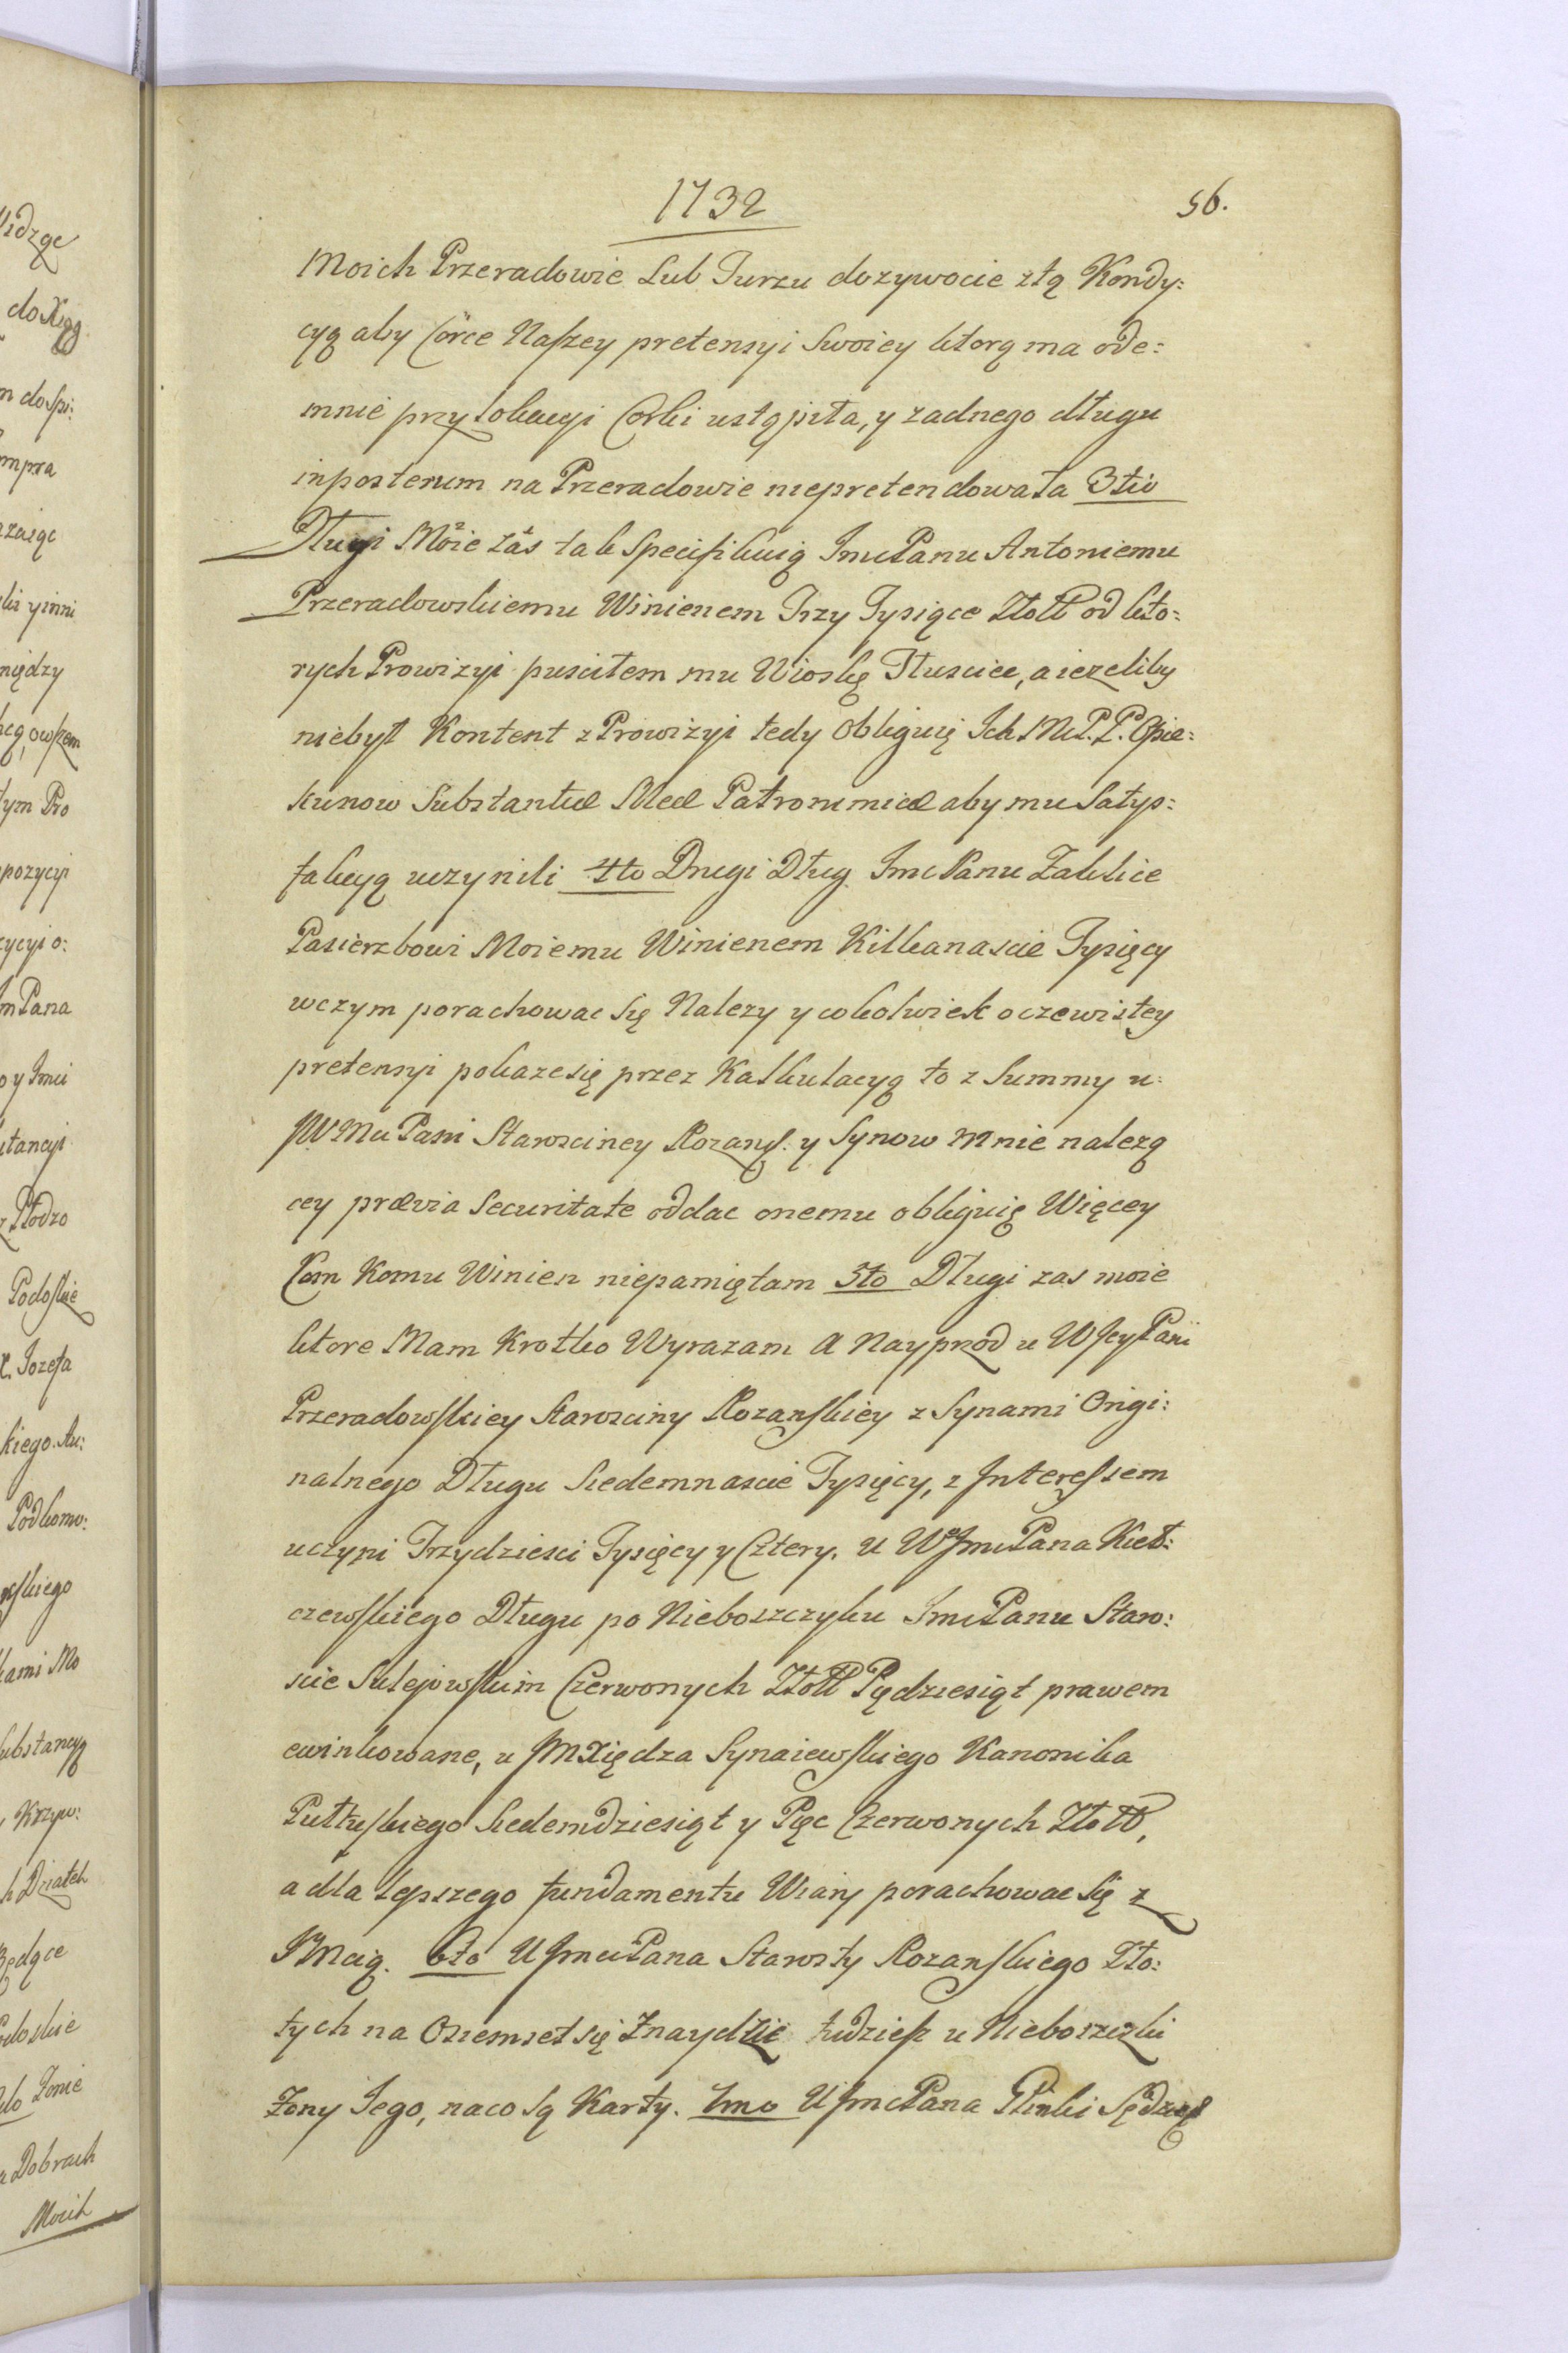 1732
56.
Moich Przeradowie Lub Turzu dozywocie ztą Kondy:
cyą aby Córce Naszey pretensyi Swoiey ktorą ma ode:
mnie przy lokacyi Corki ustąpiła, y zadnego długu
inposterum na Przeradowie niepretendowała 3tio
Długi Moie zas tak Specifikuię ImcPanu Antoniemu
Przeradowskiemu Winienem Trzy Tysiące Złott od kto:
rych Prowizyi pusciłem mu Wioskę Tłuscice, a iezeliby
niebył Kontent z Prowizyi tedy obliguię Ich M.P.P. Opie:
kunow Substantiæ Meæ Patrommiæ aby mu Satys:
fakcyą uczynili 4to Drugi Dług ImcPanu Zaklice
Pasierzbowi Moiemu Winienem Kilkanascie Tysięcy
wczym porachowac się Nalezy y cokolwiek oczewistey
pretensyi pokazesię przez Kalkulacyą to z Summy u
JWMci Pani Starosciney Rozans. y Synow mnie nalezą
cey prævia Securitate oddac onemu obliguię Więcey
Com Komu Winien niepamiętam 5to Długi zas moie
ktore Mam Krotko Wyrazam A Nayprzod u WJeyPani
Przeradowskiey Starosciny Rozanskiey z Synami Origi:
nalnego Długu Siedemnascie Tysięcy, z Interessem
uczyni Trzydziesci Tysięcy y Cztery. U WJmcPana Kieł:
czewskiego Długu po Nieboszczyku ImcPanu Staro:
scie Sulejowskim Czerwonych Złott Pędziesiąt prawem
ewinkowane, u JMXiędza Synaiewskiego Kanonika
Pułtuskiego Siedemdziesiąt y Pięc Czerwonych Złott,
a dla lepszego fundamentu Wiary porachowac się z
JMcią. 6to U JmciPana Starosty Rozanskiego Zło:
tych na Osiemset się Znaydzie tudziesz u Nieboszczki
Zony Jego, naco są Karty. 7mo U JmcPana Glinki Sędzeg